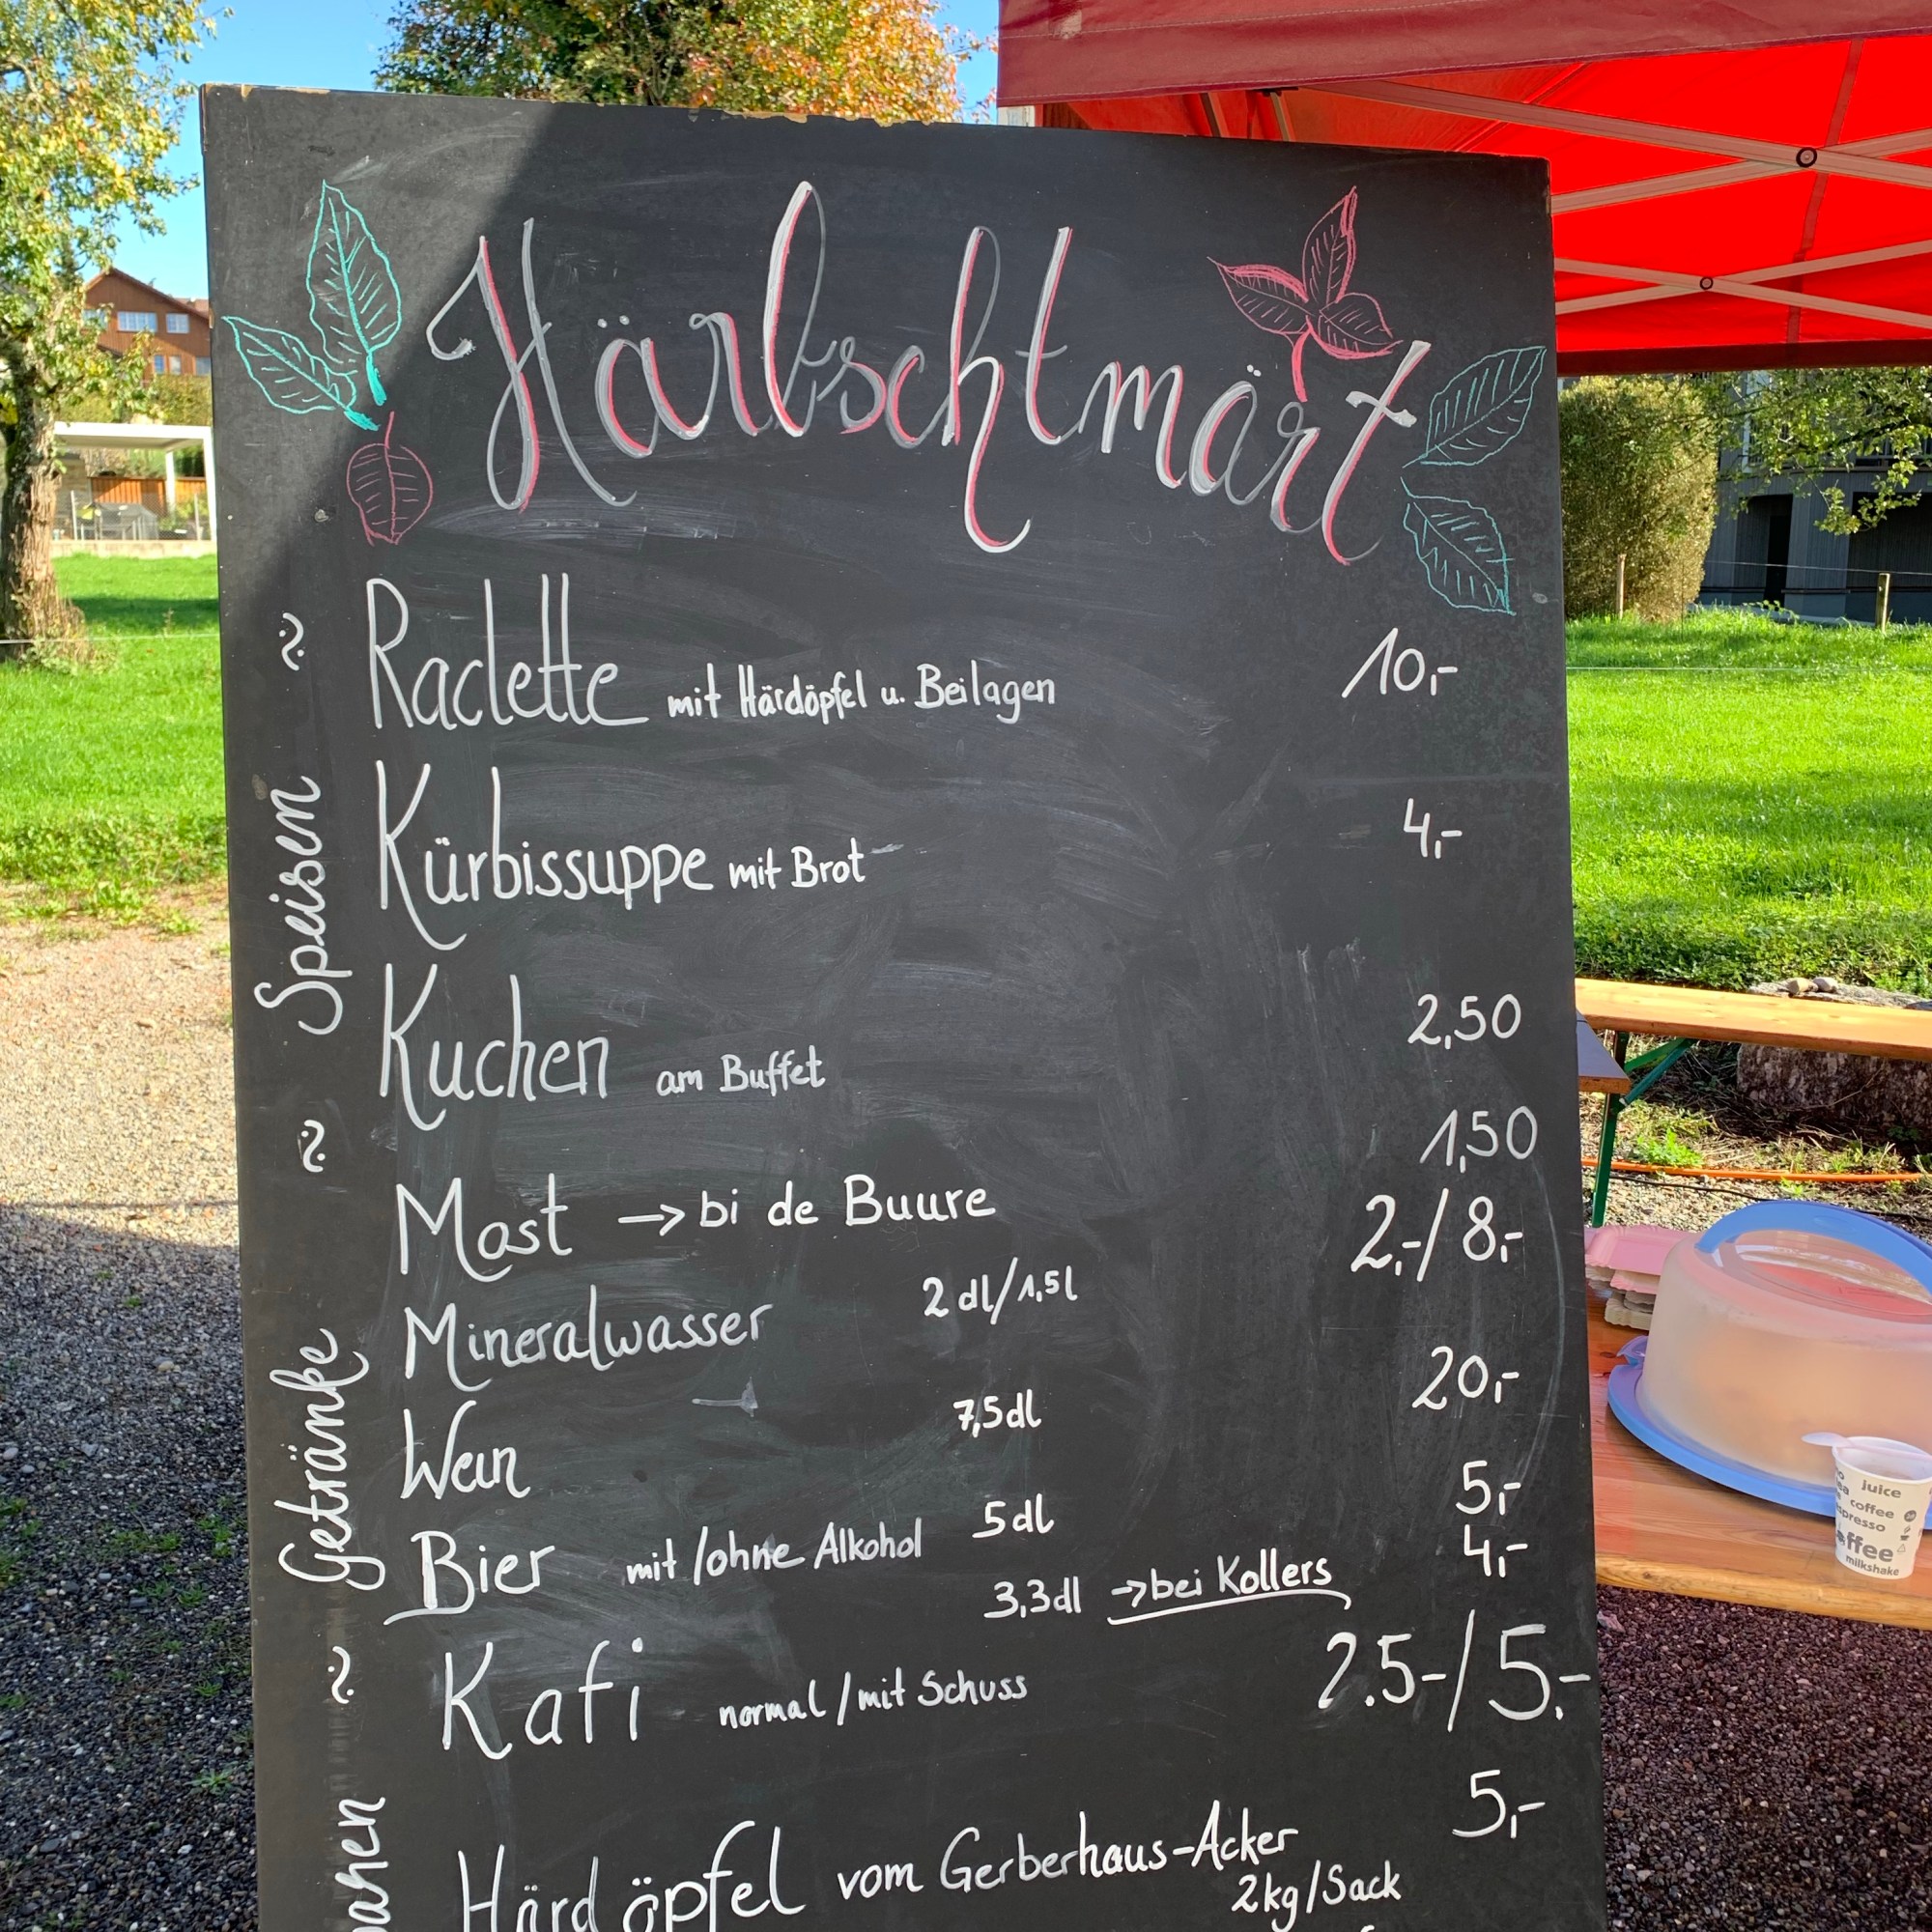 Härbschtmärt
Speisen
Raclette mit Härdöpfel u. Beilagen 10,-
Kürbissuppe mit Brot 4,-
Kuchen am Buffet 2,50
Getränke
Most → bi de Buure 1,50
Mineralwasser 2 dl/1,5l 2,-/8,-
Wein 7,5dl 20,-
Bier mit/ohne Alkohol 5dl 5,-
3,3dl → bei Kollers 4,-
Kafi normal/mit Schuss 2.5-/5.-
Härdöpfel vom Gerberhaus-Acker 5,-
2kg/Sack
juice
coffee
ffee
milkshake